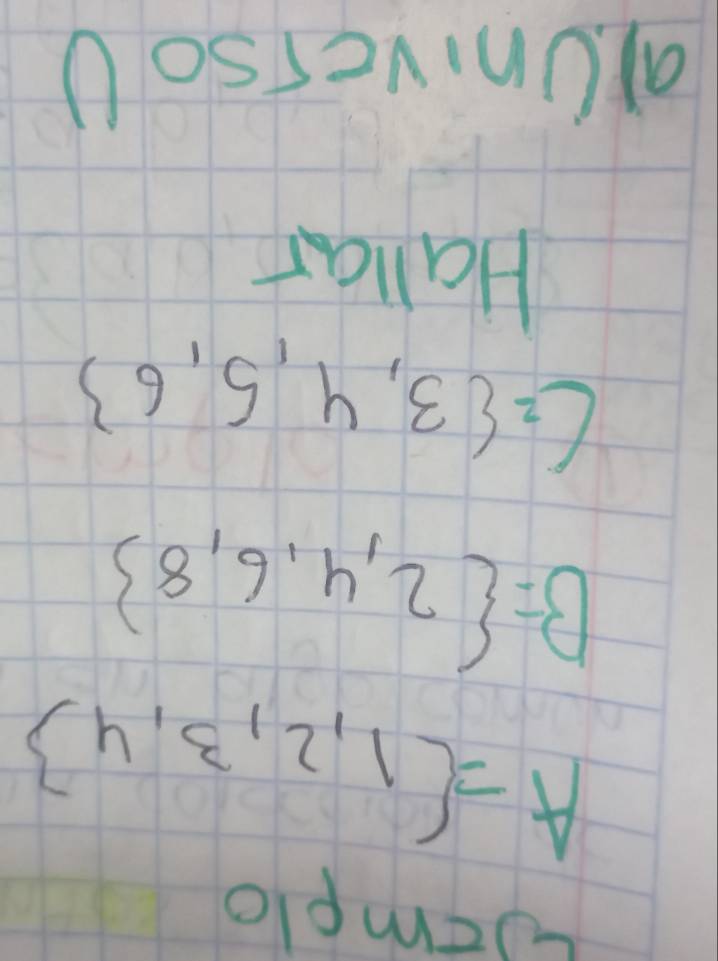 Ejemplo
A = {1, 2, 3, 4}
B = {2, 4, 6, 8}
C = {3, 4, 5, 6}
Hallar
a) Universo U